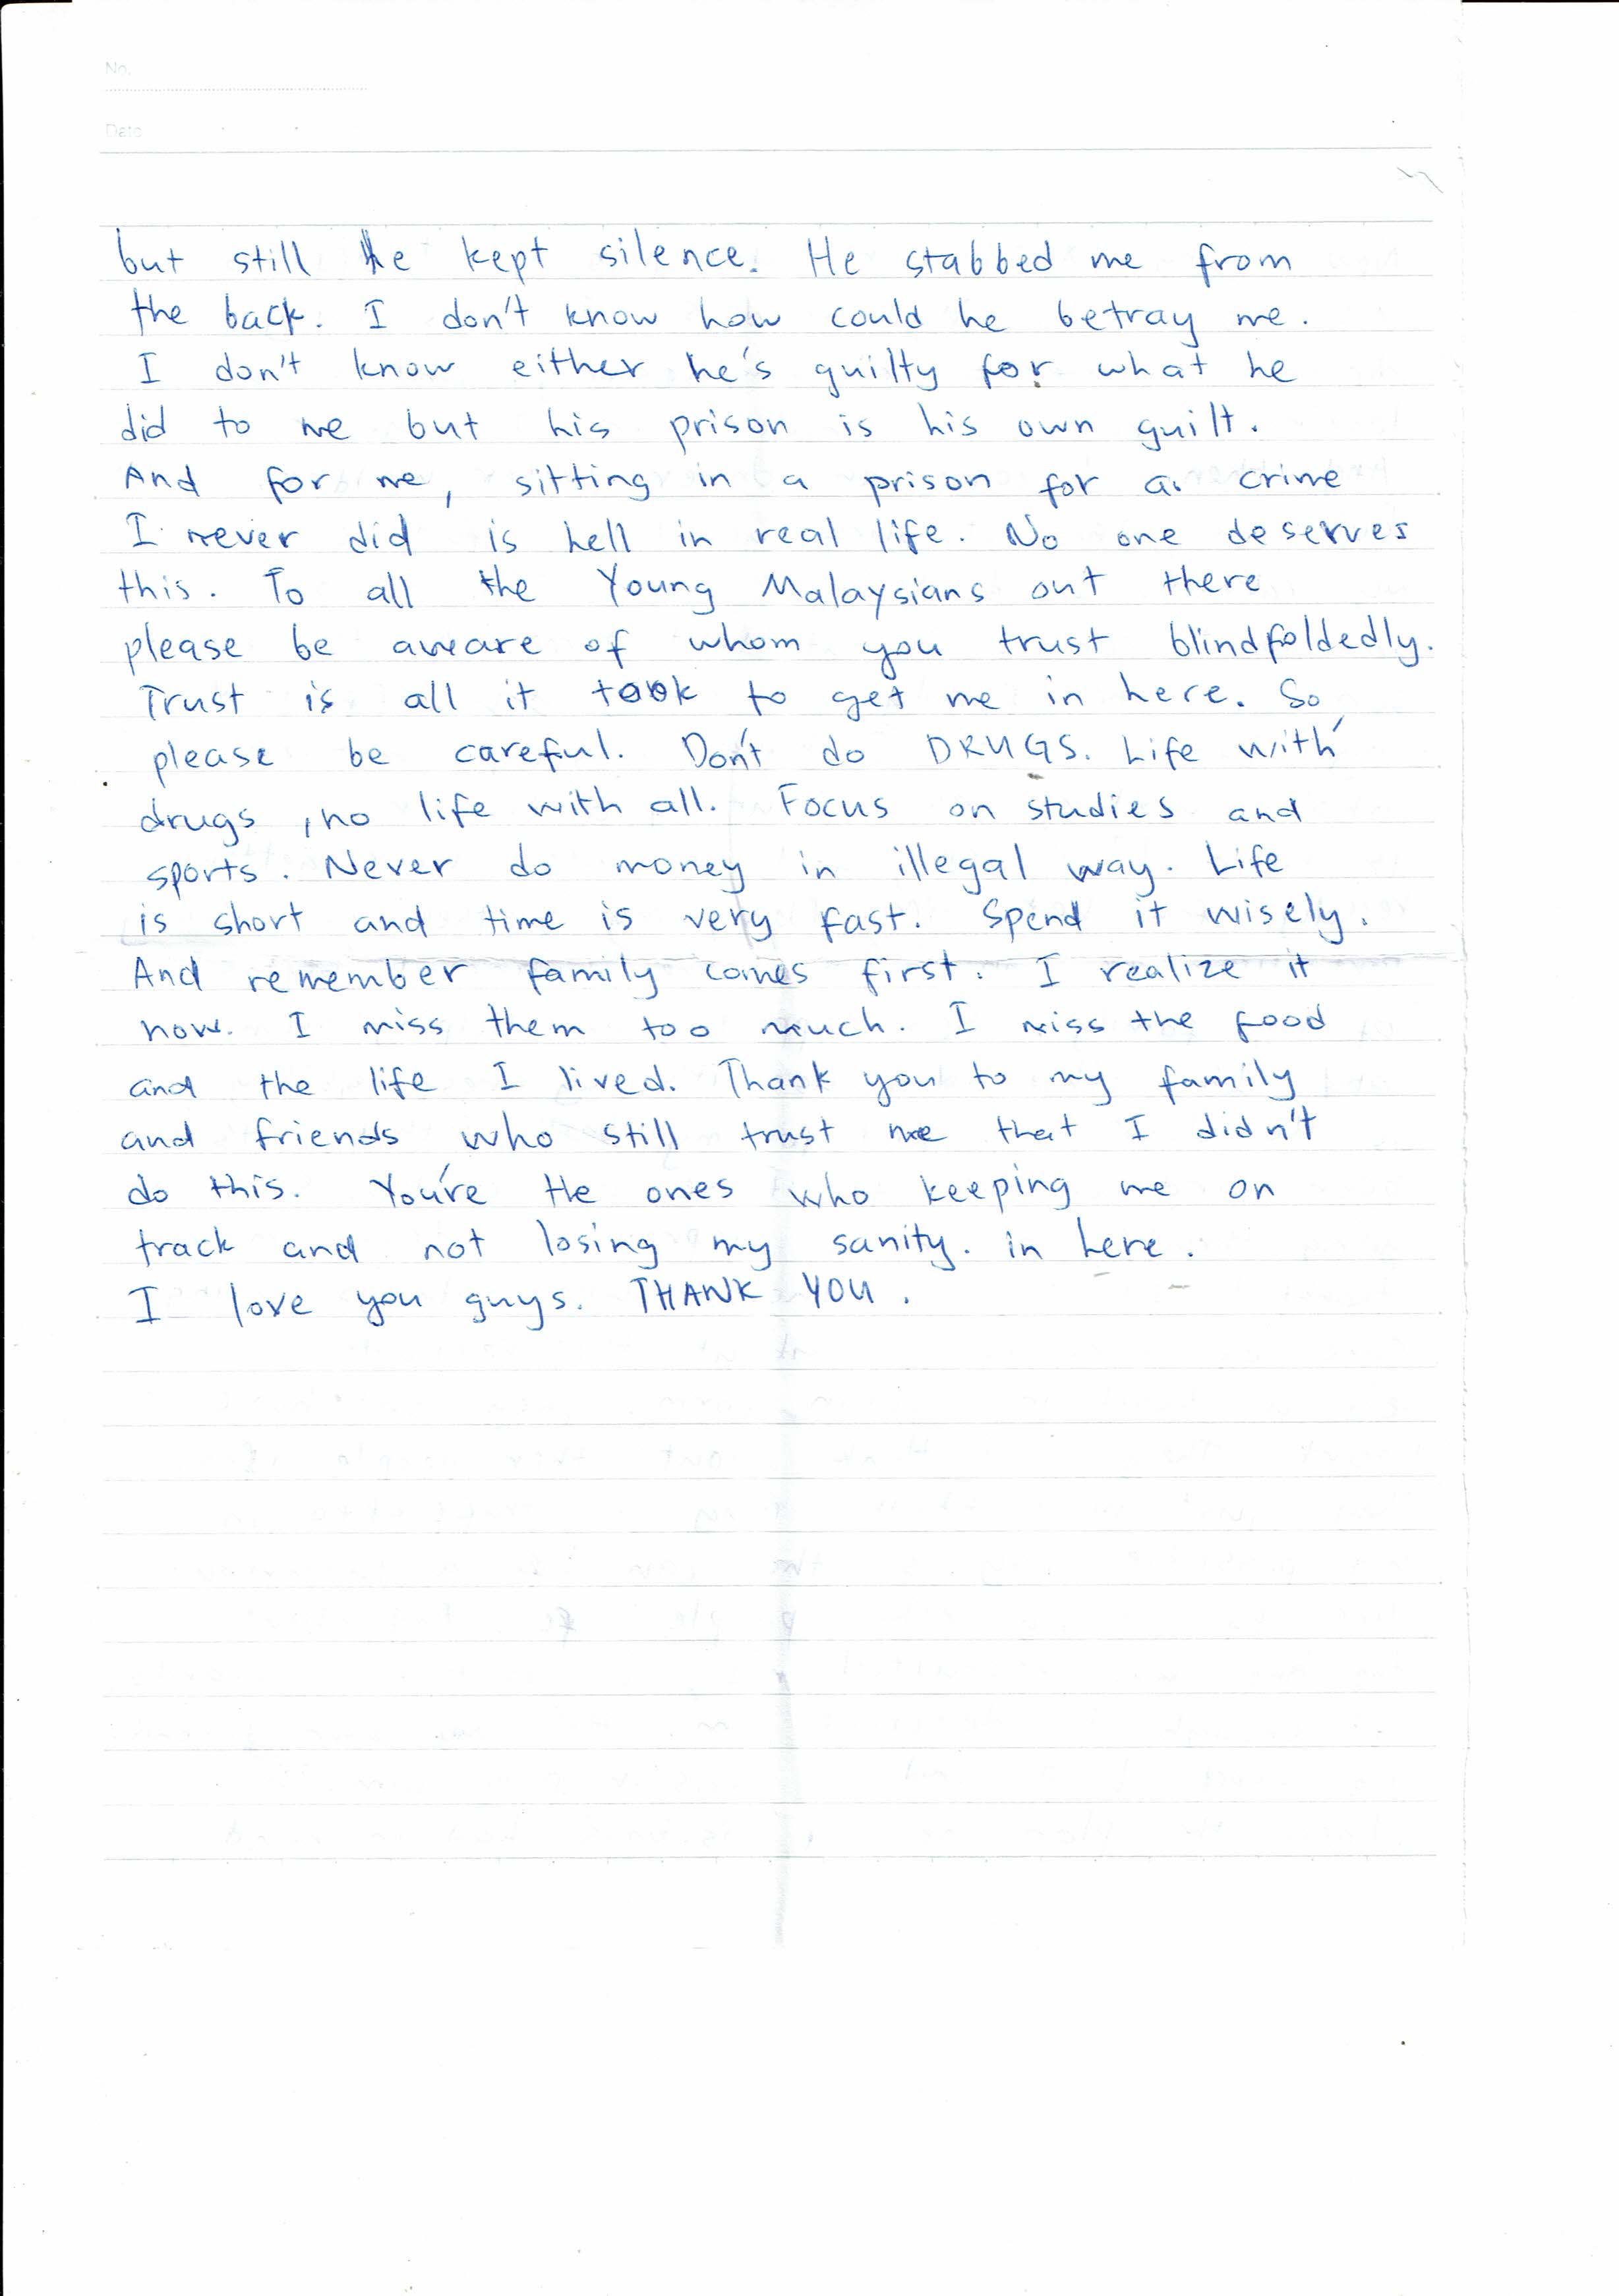 No.
Date
but still he kept silence. He stabbed me from
the back. I don't know how could he betray me.
I don't know either he's guilty for what he
did to me but his prison is his own guilt.
And for me, sitting in a prison for a crime
I never did is hell in real life. No one deserves
this. To all the Young Malaysians out there
please be aware of whom you trust blindfoldedly.
Trust is all it took to get me in here. So
please be careful. Don't do DRUGS. Life with
drugs, no life with all. Focus on studies and
sports. Never do money in illegal way. Life
is short and time is very fast. Spend it wisely.
And remember family comes first. I realize it
now. I miss them too much. I miss the food
and the life I lived. Thank you to my family
and friends who still trust me that I didn't
do this. You're the ones who keeping me on
track and not losing my sanity. in here.
I love you guys. THANK YOU.